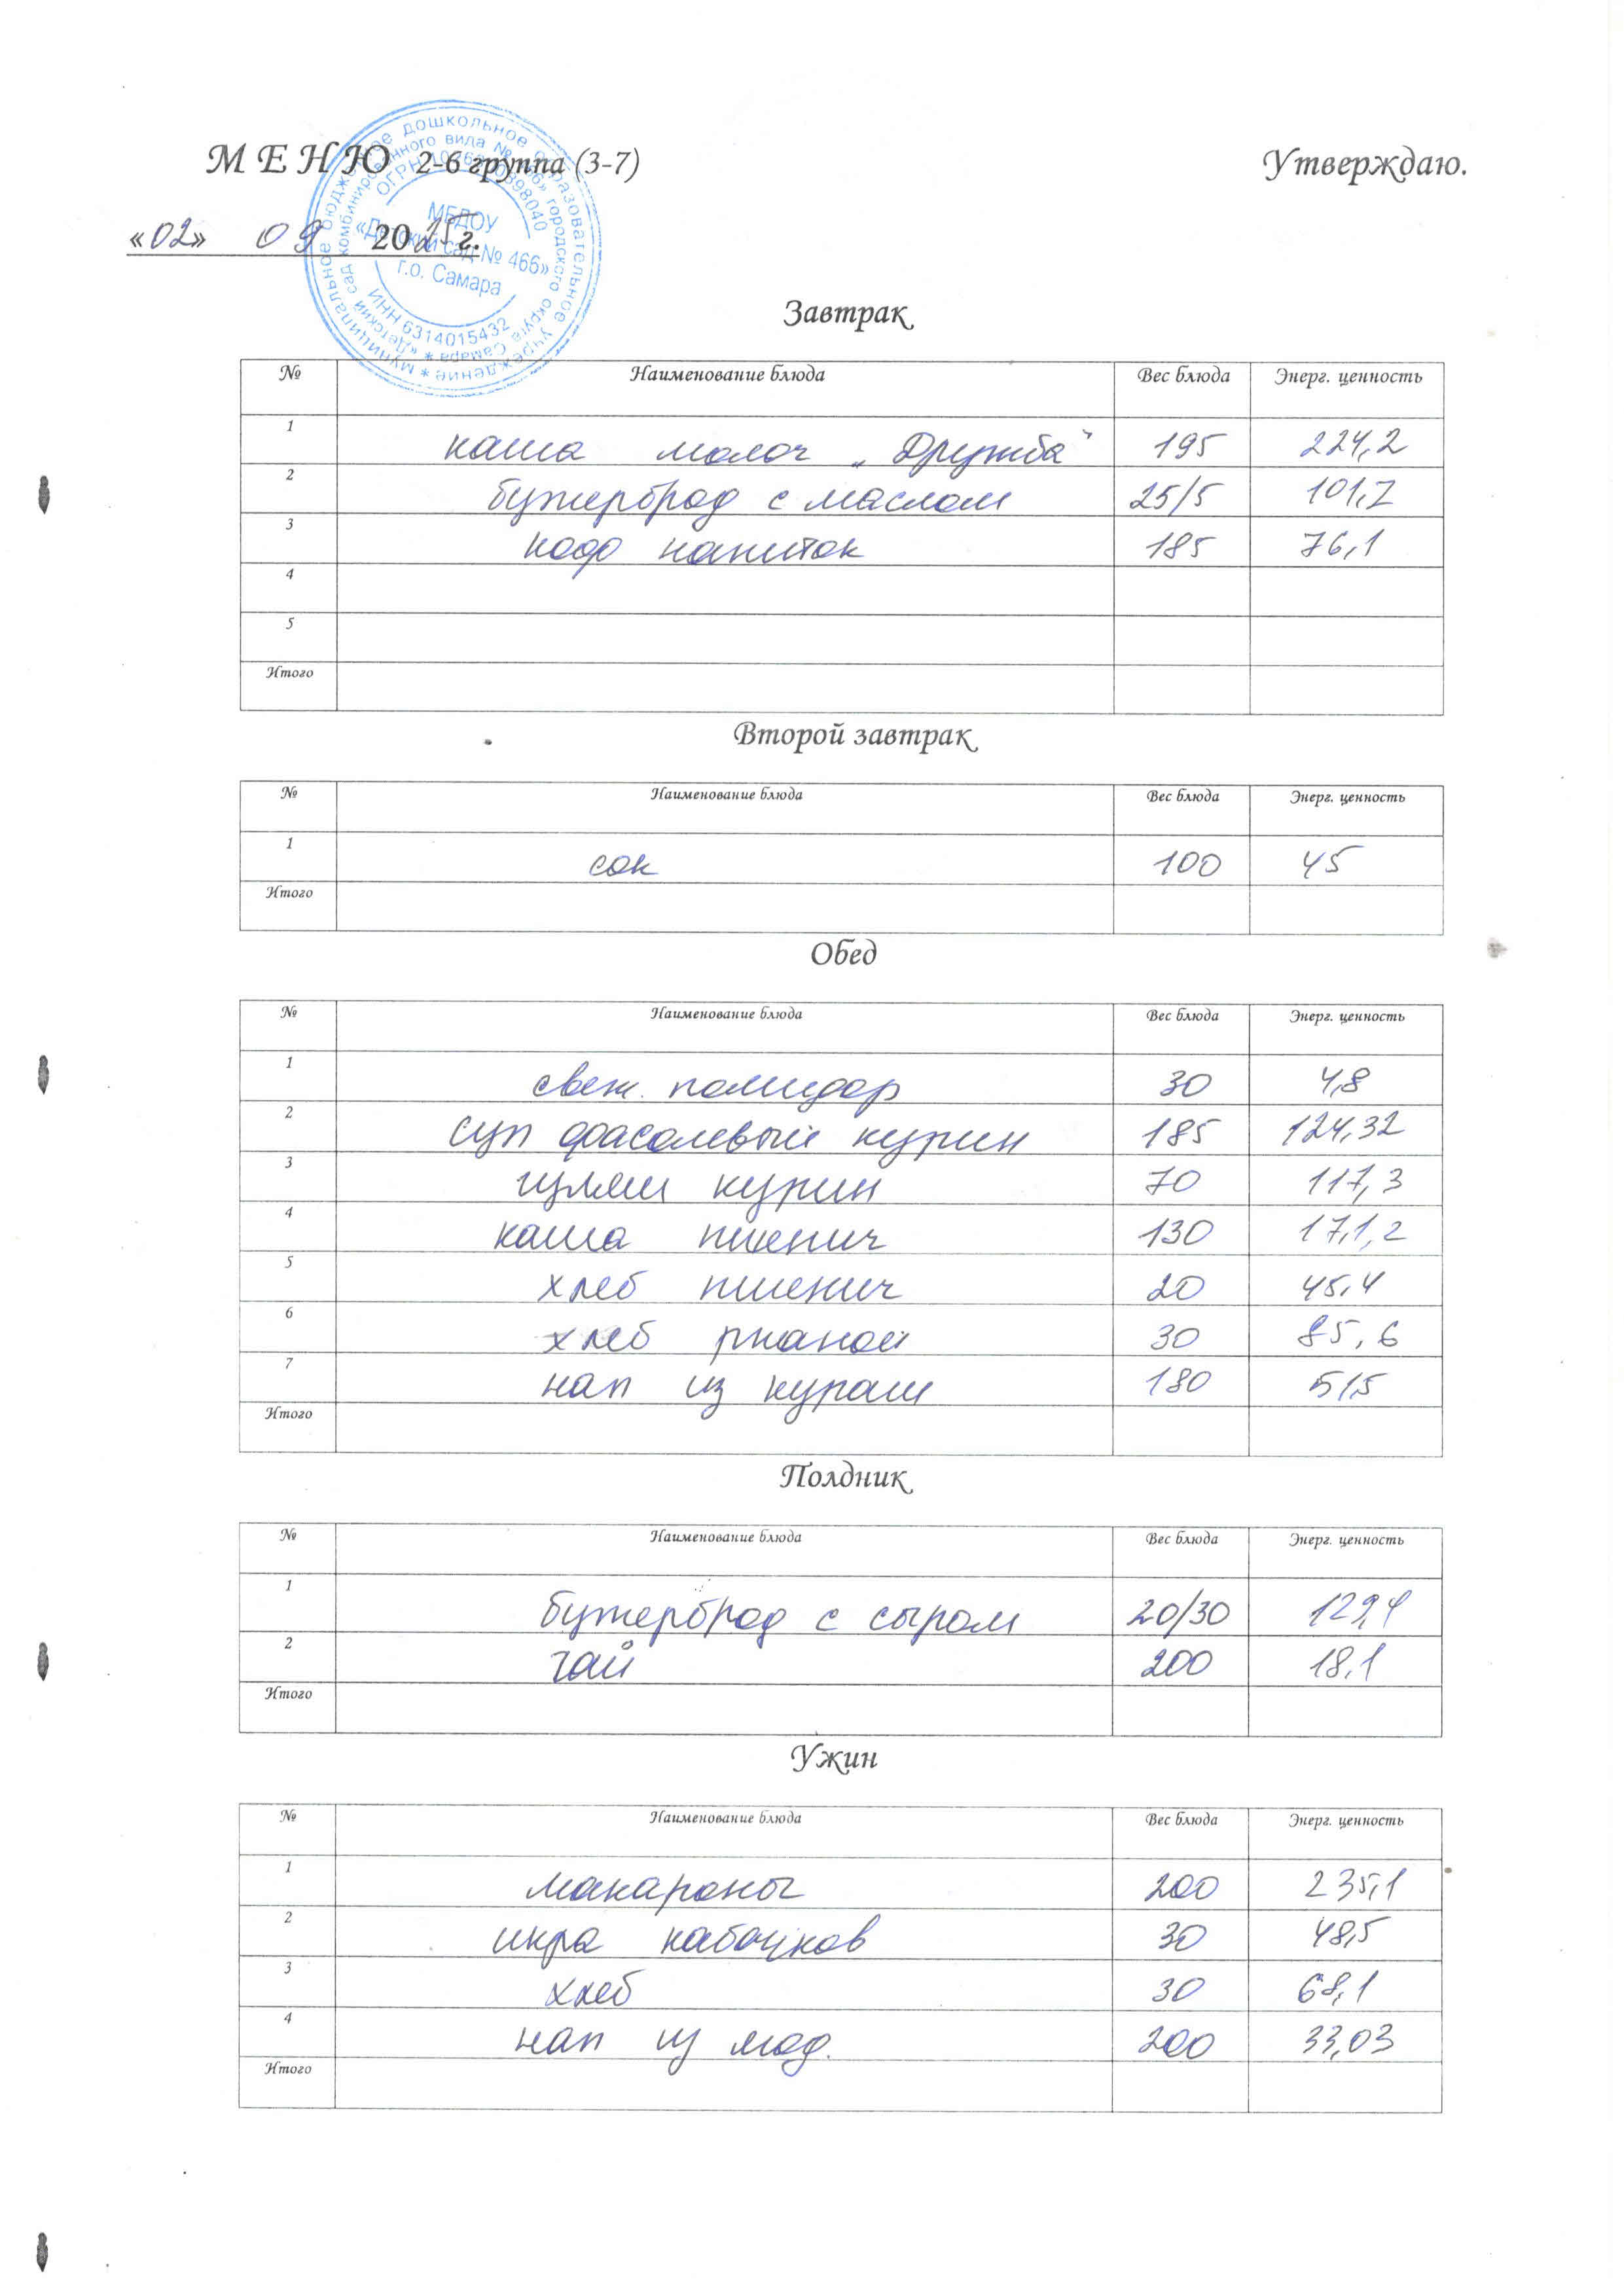 М Е Н Ю 2-6 группа (3-7) Утверждаю.
«02» 09 2025г.
муниципальное бюджетное дошкольное образовательное учреждение *
«Детский сад комбинированного вида № 466» городского округа Самара *
МБДОУ
«Детский сад № 466»
г.о. Самара
ИНН 6314015432
Завтрак
№ Наименование блюда Вес блюда Энерг. ценность
1 каша молоч „Дружба" 195 224,2
2 бутерброд с маслом 25/5 101,7
3 кофе напиток 185 76,1
4
5
Итого
Второй завтрак
№ Наименование блюда Вес блюда Энерг. ценность
1 сок 100 45
Итого
Обед
№ Наименование блюда Вес блюда Энерг. ценность
1 свеж. помидор 30 4,8
2 суп фасолевый курин 185 124,32
3 гуляш курин 70 117,3
4 каша пшенич 130 171,2
5 хлеб пшенич 20 45,4
6 хлеб ржаной 30 85,6
7 нап из кураги 180 51,5
Итого
Полдник
№ Наименование блюда Вес блюда Энерг. ценность
1 бутерброд с сыром 20/30 129,4
2 чай 200 18,1
Итого
Ужин
№ Наименование блюда Вес блюда Энерг. ценность
1 макароны 200 235,1
2 икра кабачков 30 48,5
3 хлеб 30 68,1
4 нап из мод. 200 33,03
Итого